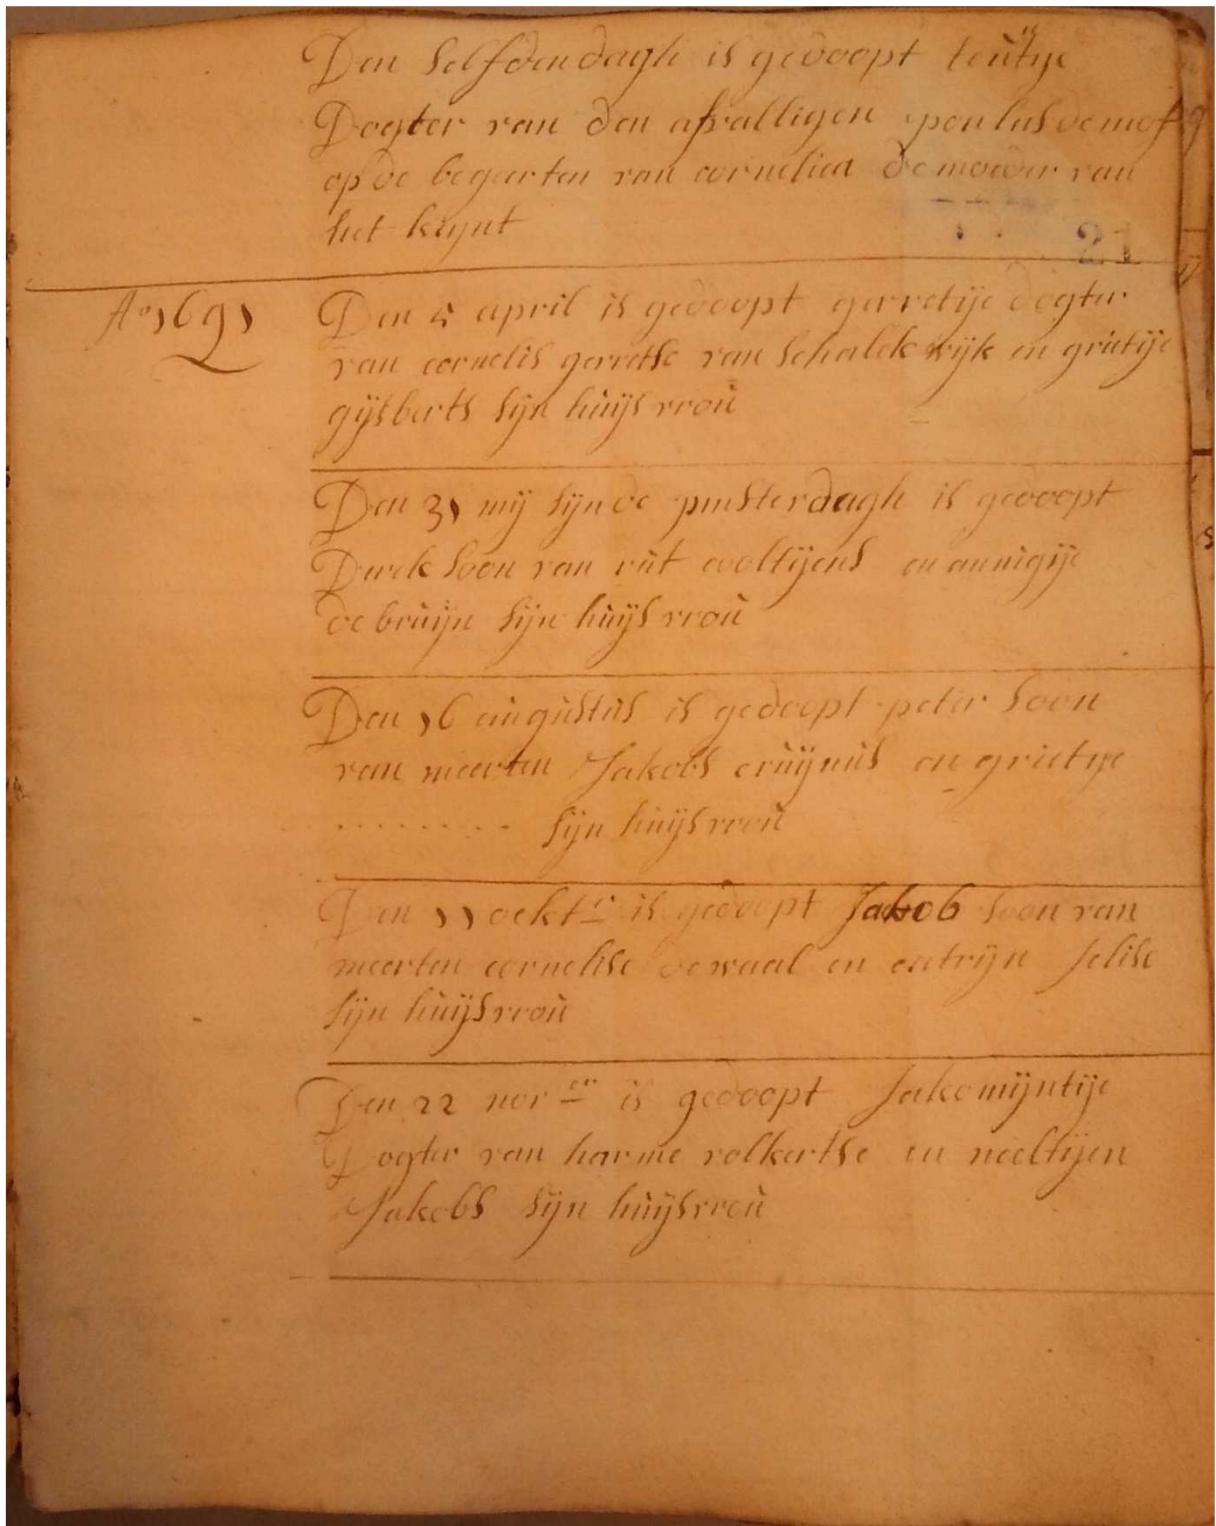 Den selfden dagh is gedoopt teuntye
Dogter van den afvalligen poulus de mof
op de begeerten van cornelia de moeder van
het kynt
21
Ao 1691 Den 5 april is gedoopt gerretije dogter
van cornelis gerretse van schalckwijk en grietije
gijsberts sijn huijs vrou
Den 31 mij sijnde pinsterdagh is gedoopt
Dirck soon van rut cooltijens en annigije
de bruijn sijn huijs vrou
Den 16 augustus is gedoopt peter soon
van meerten Jakobs cruijnus en grietye
......... sijn huijsvrou
Den 11 ockt.r is gedoopt Jakob soon van
meerten cornelise de waal en catrijn Jelise
sijn huijsvrou
Den 22 nov.er is gedoopt Jakomijntije
Dogter van harme volkertse en neeltijen
Jakobs sijn huijsvrou